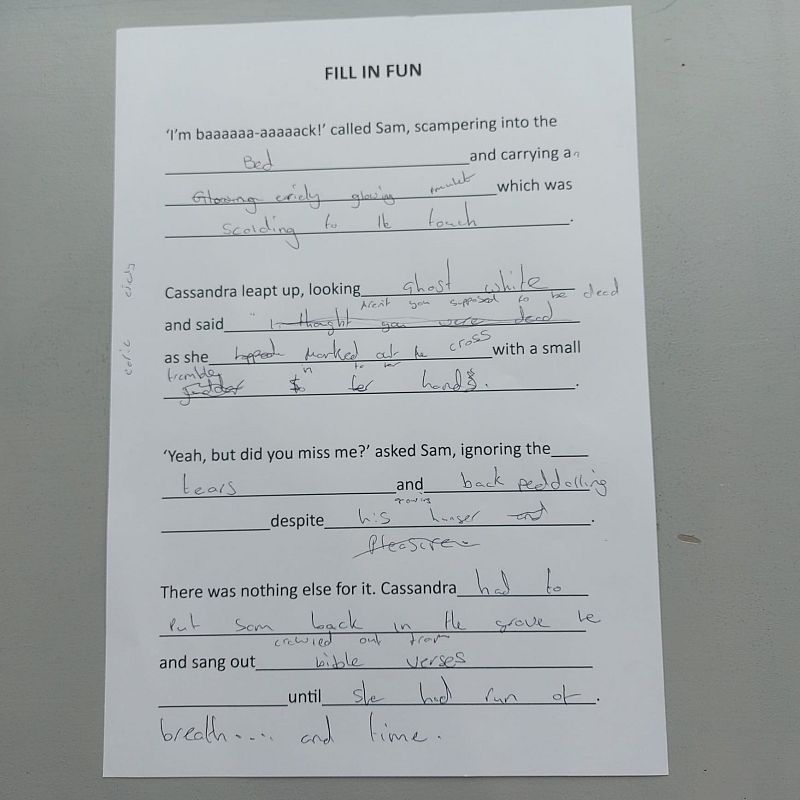 FILL IN FUN
'I'm baaaaaa-aaaaack!' called Sam, scampering into the
Bed and carrying an
Glowing eriely glowing amulet which was
Scolding to the touch.
Cassandra leapt up, looking ghost white
Aren't you supposed to be dead
and said "I thought you were dead
as she Marked out the cross with a small
tremble in to her hands.
'Yeah, but did you miss me?' asked Sam, ignoring the
tears and back peddalling
growing
despite his hunger and
Pleascren
There was nothing else for it. Cassandra had to
Put Sam back in the grave he
crawled out from
and sang out bible verses
until she had run of.
breath.... and time.